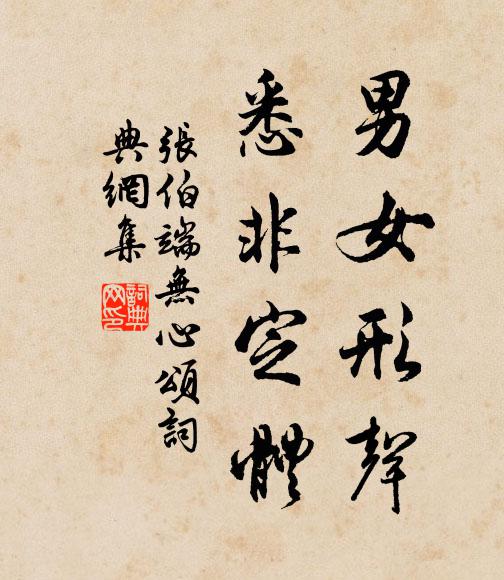 男女形聲
悉非定體
張伯端無心頌詞
典網集
詞典網印